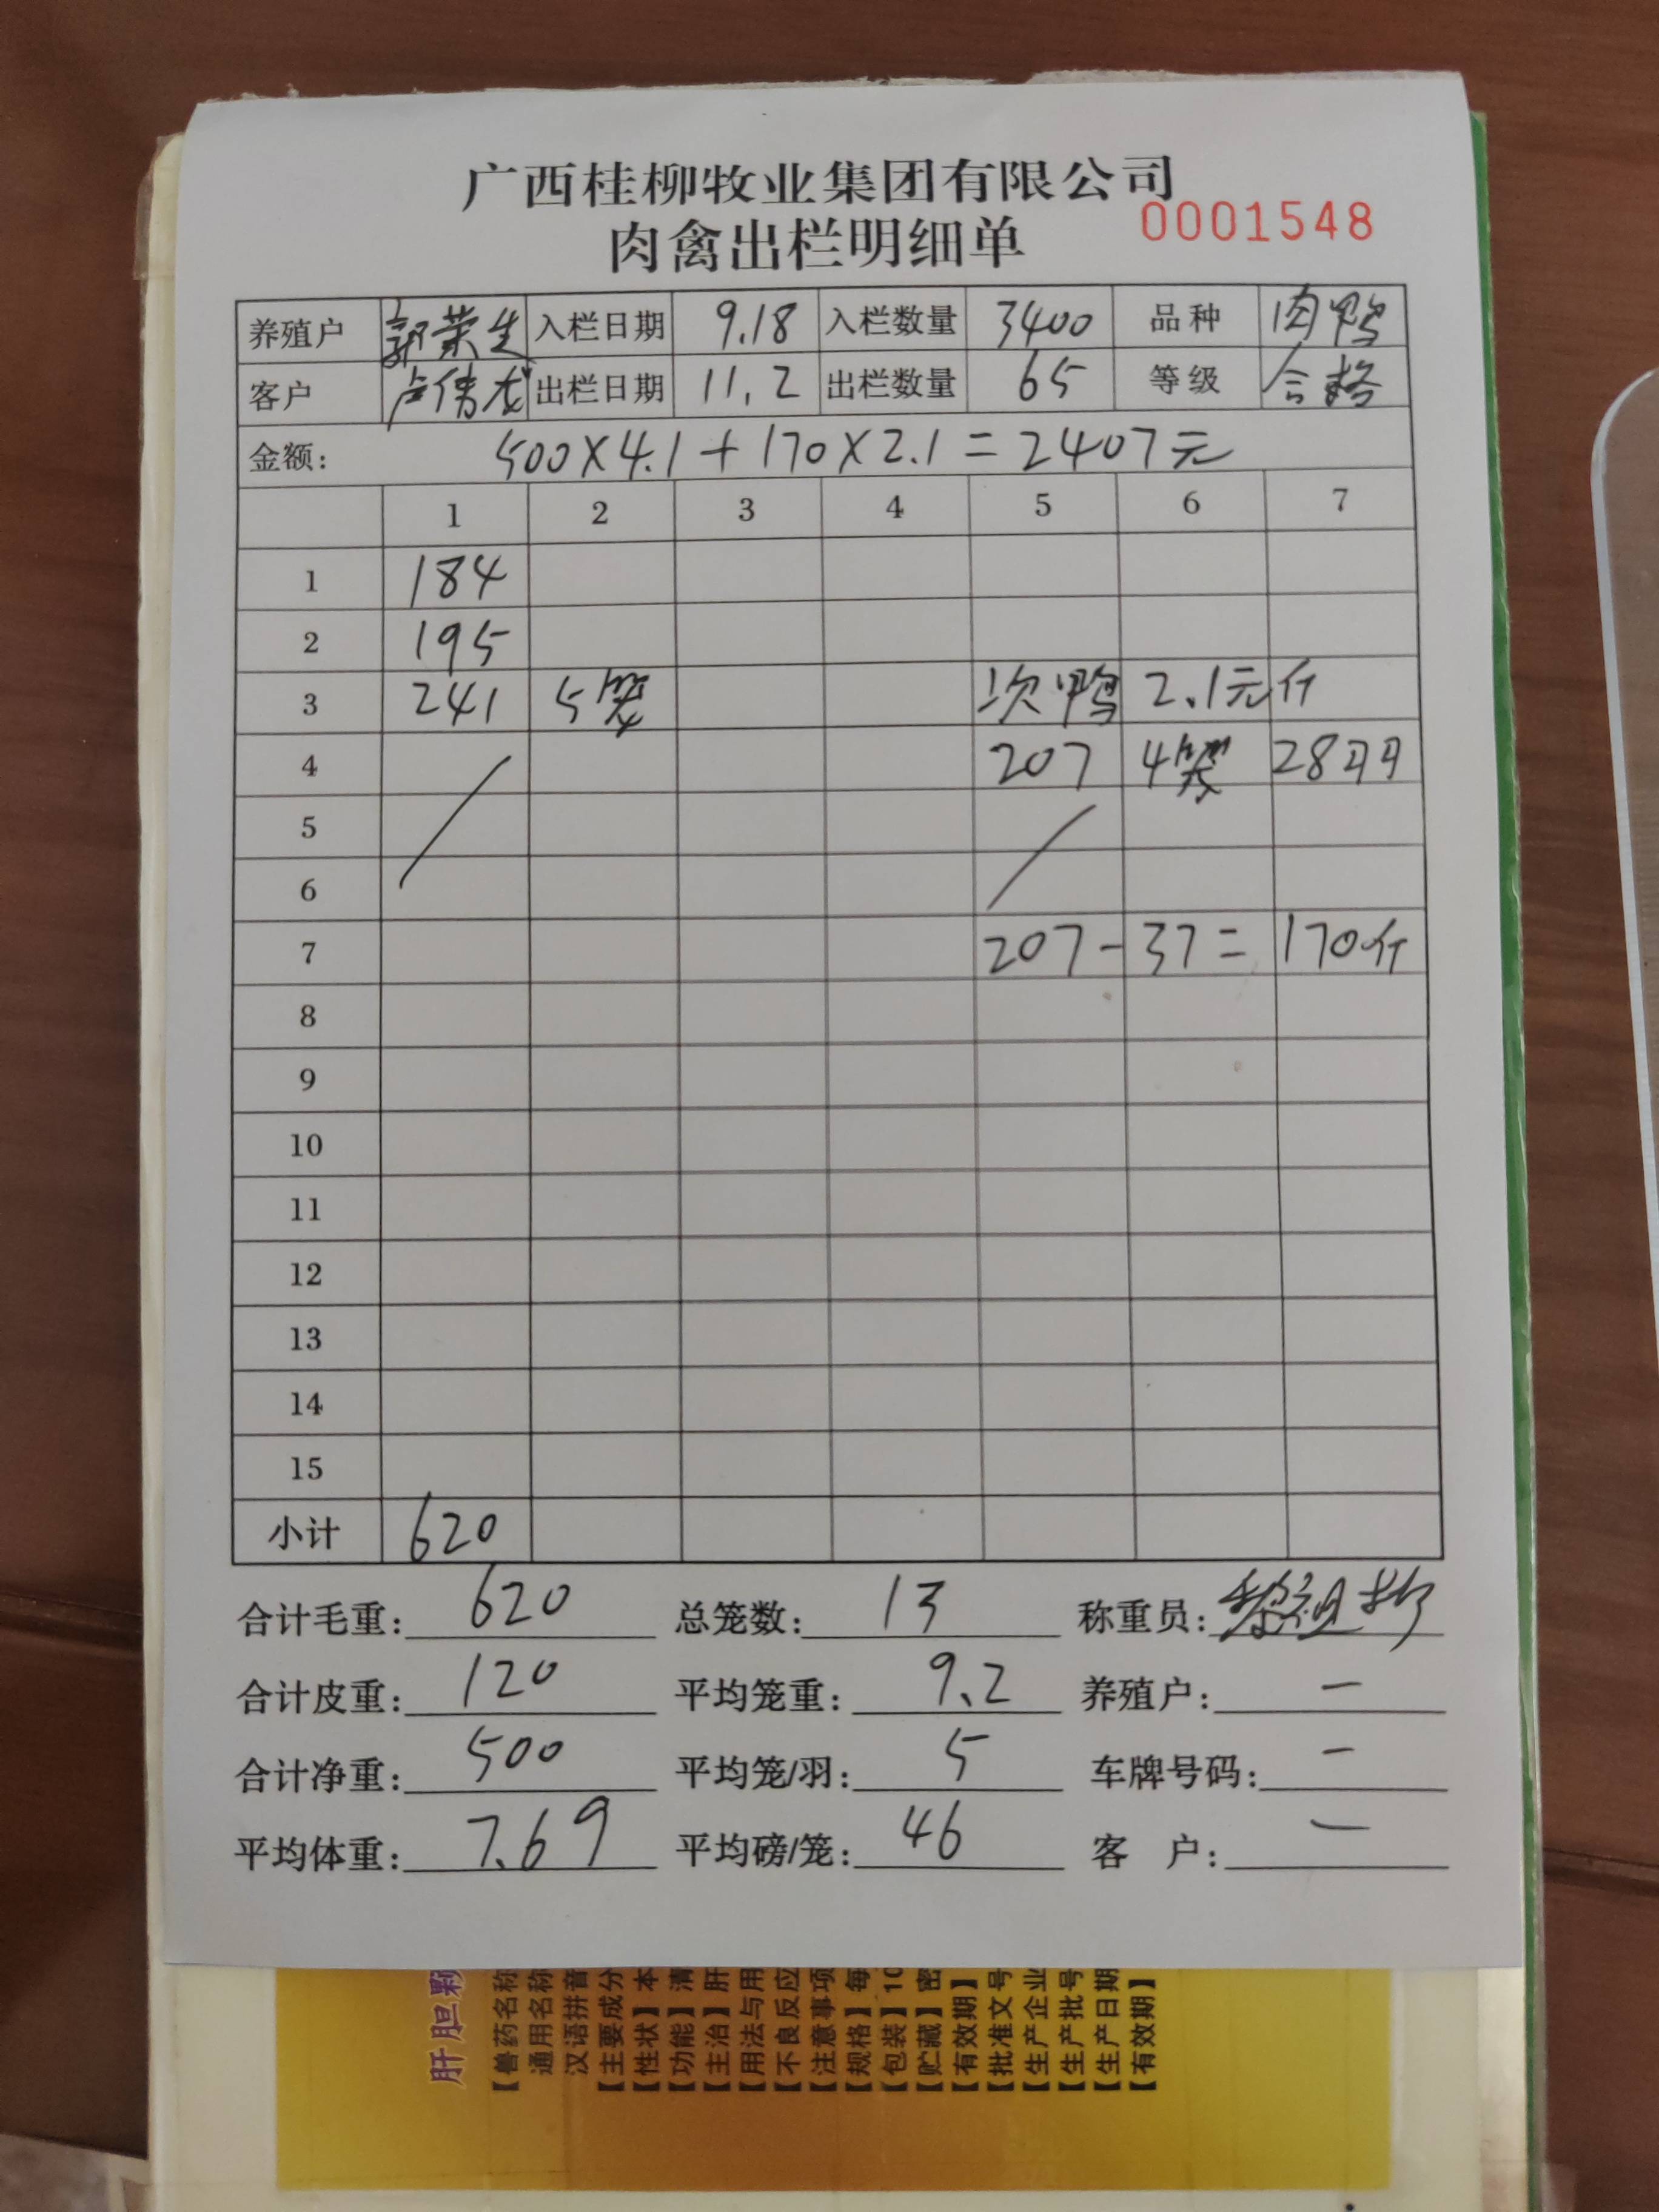 广西桂柳牧业集团有限公司
肉禽出栏明细单 0001548
养殖户 郭荣生 入栏日期 9.18 入栏数量 3400 品种 肉鸭
客户 卢伟龙 出栏日期 11.2 出栏数量 65 等级 合格
金额: 500×4.1+170×2.1=2407元
1 2 3 4 5 6 7
1 184
2 195
3 241 5笼 次鸭 2.1元/斤
4 207 4笼 28羽
5
6
7 207-37=170斤
8
9
10
11
12
13
14
15
小计 620
合计毛重: 620 总笼数: 13 称重员:
合计皮重: 120 平均笼重: 9.2 养殖户: —
合计净重: 500 平均笼/羽: 5 车牌号码: —
平均体重: 7.69 平均磅/笼: 46 客 户: —
肝胆颗
【兽药名称
通用名称
汉语拼音
【主要成分
【性状】本
【功能】清
【主治】肝
【用法与用
【不良反应
【注意事项
【规格】每
【包装】10
【贮藏】密
【有效期】
【批准文号
【生产企业
【生产批号
【生产日期
【有效期】